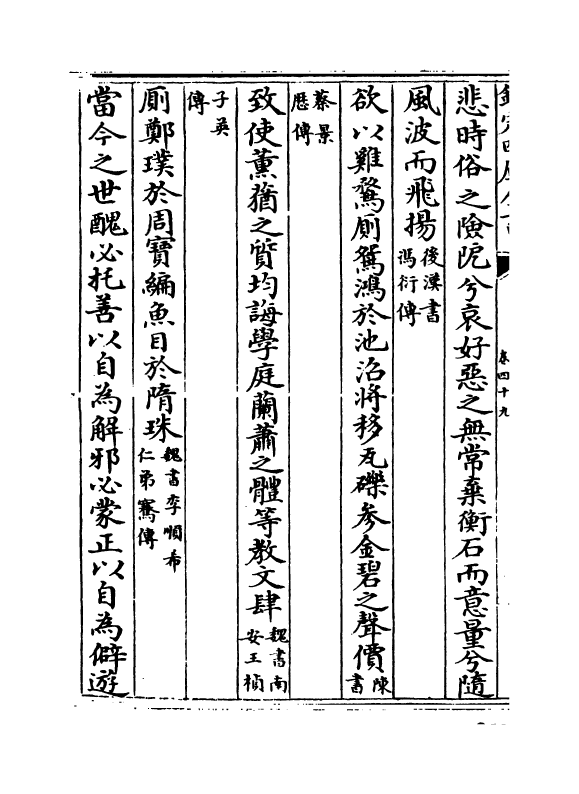 悲時俗之險阨兮哀好惡之無常棄衡石而意量兮隨
風波而飛揚後漢書馮衍傳
欲以雞鶩廁鴛鴻於池沼將移瓦礫參金碧之聲價陳書
蔡景歷傳
致使薰蕕之質均誨學庭蘭蕭之體等教文肆魏書南安王楨
子英傳
廁鄭璞於周寶編魚目於隋珠魏書李順希仁弟騫傳
當今之世醜必托善以自為解邪必蒙正以自為僻遊
卷四十九